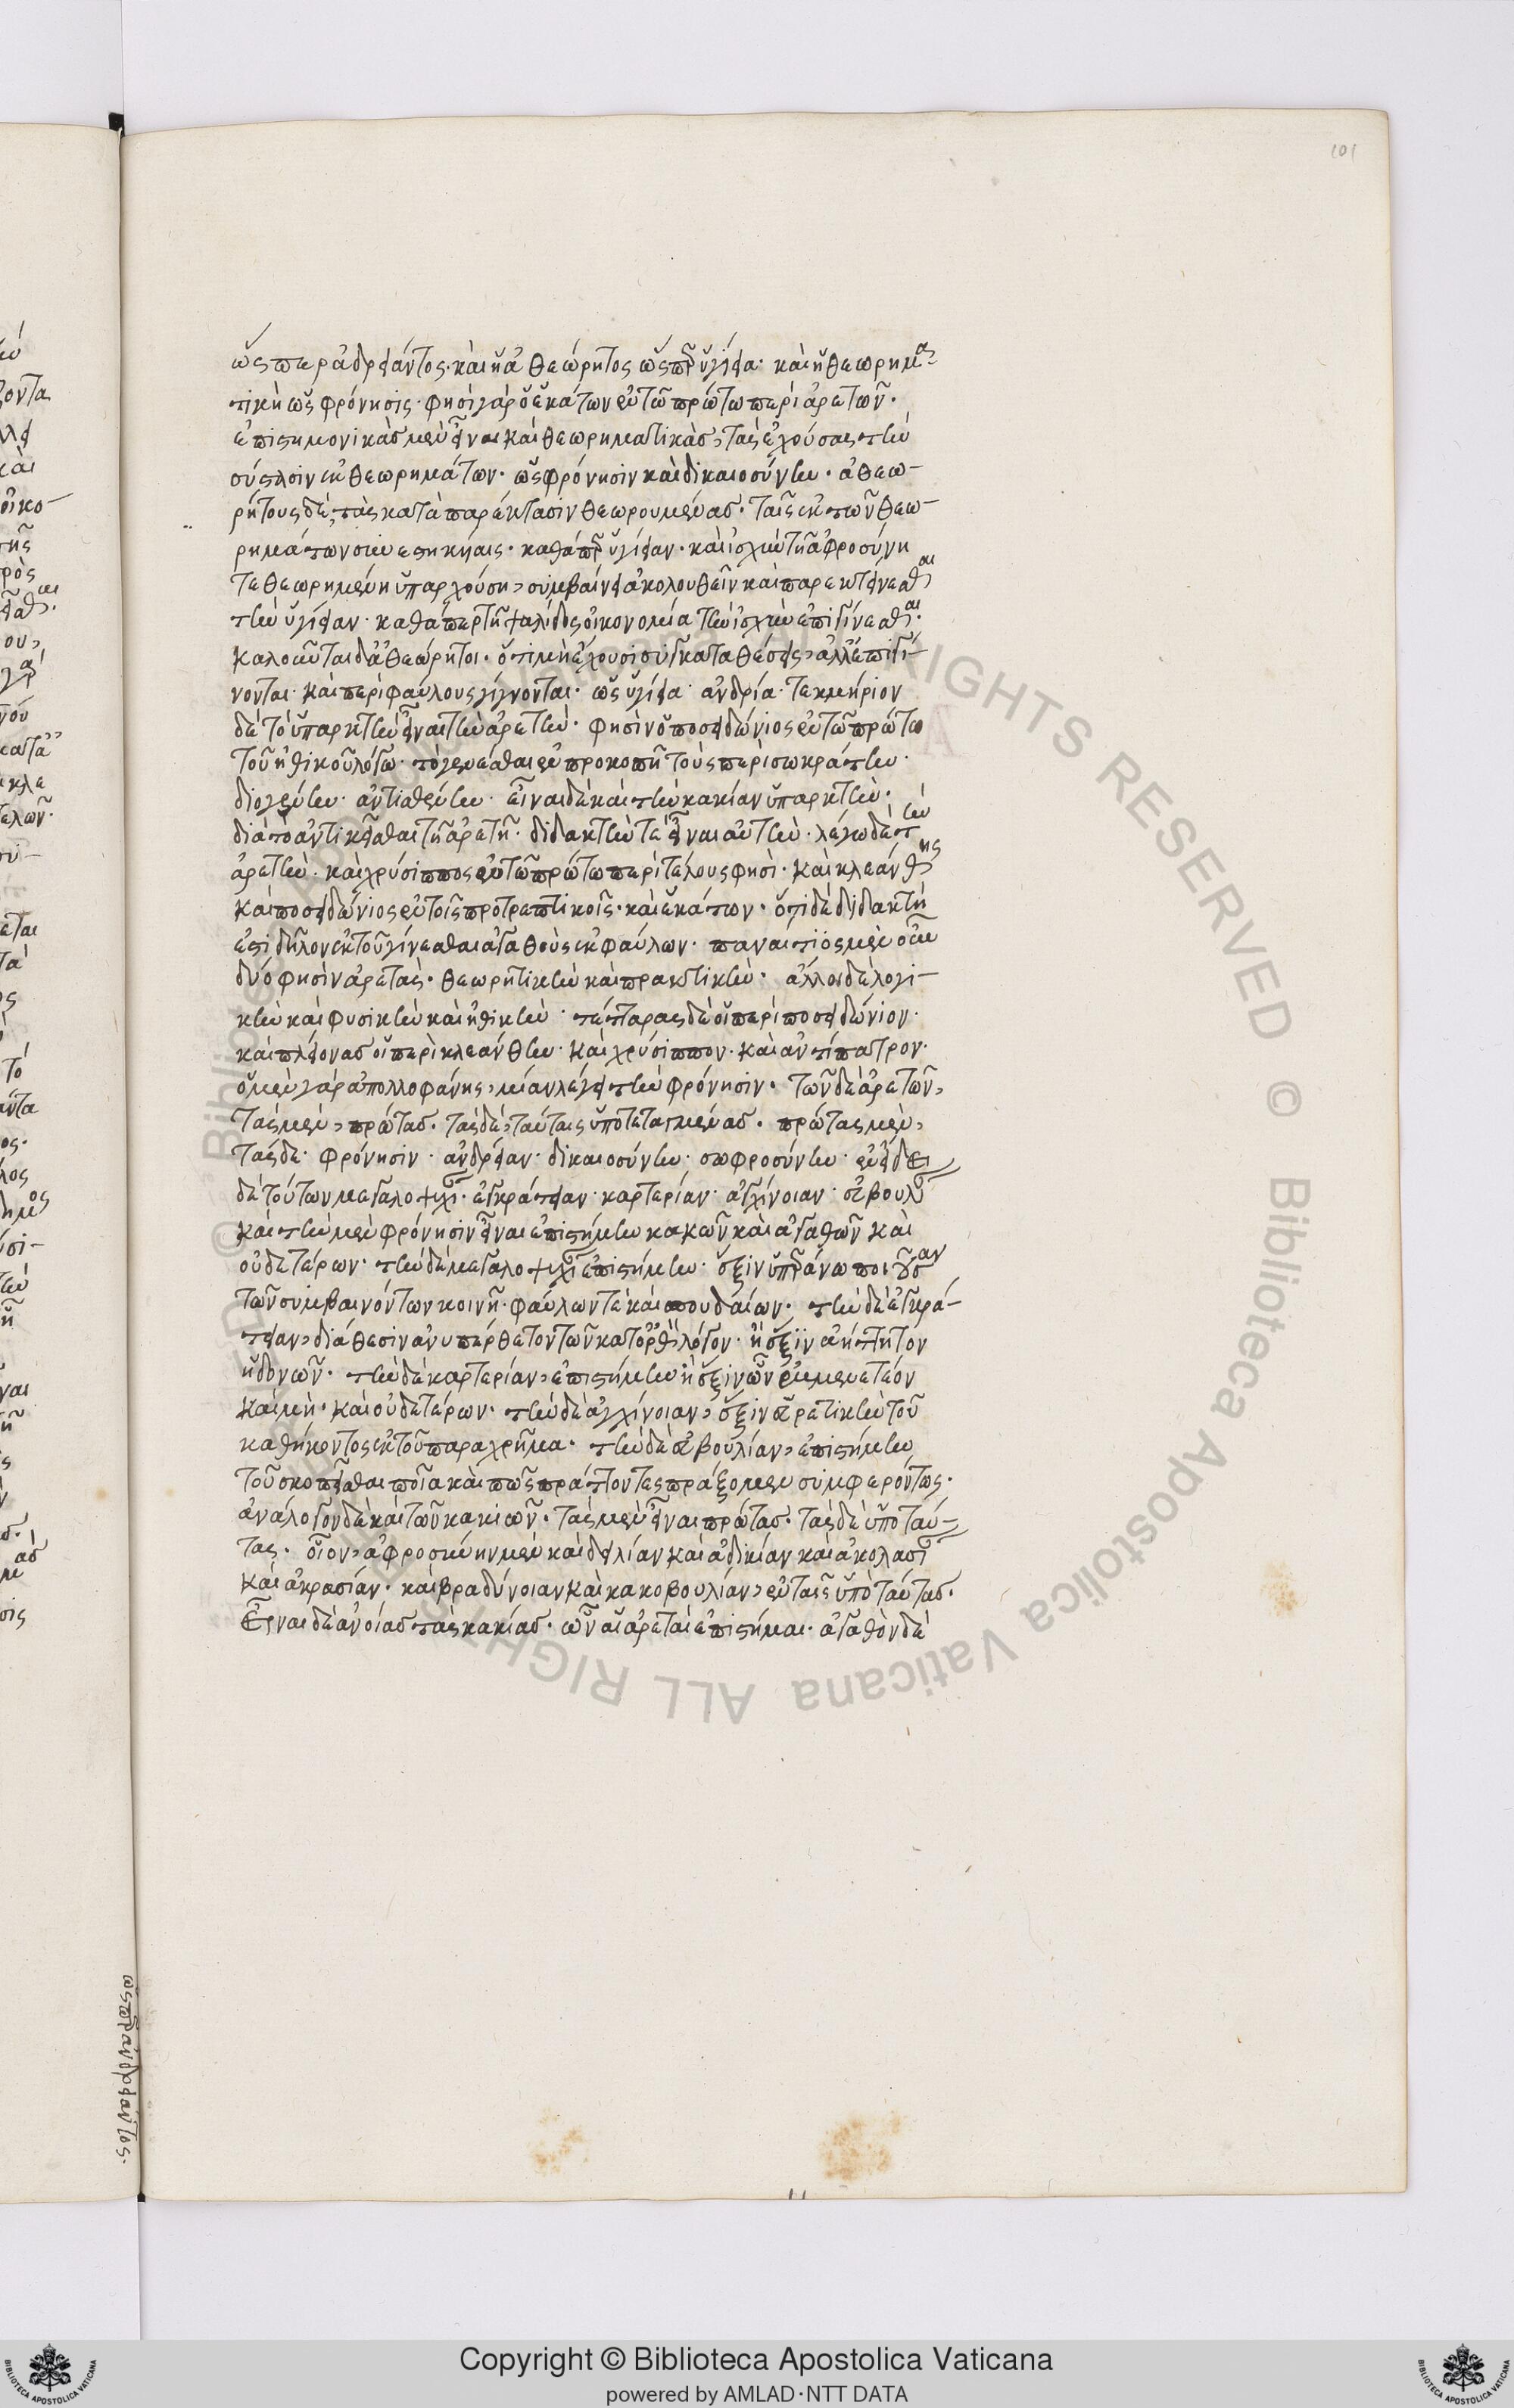 101
ὥσπερ ἀδρϊάντος· καὶ ἡ ἀθεώρητος ὥσπερ ὑγίεια· καὶ ἡ θεωρημα
τικὴ ὡς φρόνησις· φησὶ γὰρ ὁ ἑκάτων ἐν τῶ πρώτω περὶ ἀρετῶν·
ἐπιστημονικὰς μὲν εἶναι καὶ θεωρηματικὰς, τὰς ἐχούσας τὴν
σύστασιν ἐκ θεωρημάτων· ὡς φρόνησιν καὶ δικαιοσύνην· ἀθεω-
ρήτους δὲ, τὰς κατὰ παρέκτασιν θεωρουμένας· ταῖς ἐκ τῶν θεω-
ρημάτων συνεστηκηίαις· καθάπερ ὑγίειαν· καὶ ἰσχὺν τῆ ἀφροσύνη
τεθεωρημένη ὑπαρχούση, συμβαίνει ἀκολουθεῖν καὶ παρεκτείνεσθαι
τὴν ὑγίειαν· καθάπερ τῆ ψαλίδος οἰκονομία τὴν ἰσχὺν ἐπιγίνεσθαι·
καλοῦνται δ' ἀθεώρητοι· ὅτι μὴ ἔχουσι συγκαταθέσεις, ἀλλ' ἐπιγί-
νονται· καὶ περὶ φαύλους γίγνονται· ὡς ὑγίεια· ἀνδρία· τεκμήριον
δὲ τὸ ὑπαρκτὴν εἶναι τὴν ἀρετὴν· φησὶν ὁ ποσειδώνιος ἐν τῶ πρώτω
τοῦ ἠθικοῦ λόγω· τὸ γενέσθαι ἐν προκοπῆ τοὺς περὶ σωκράτην·
διογένην· ἀντισθένην· εἶναι δὲ καὶ τὴν κακίαν ὑπαρκτὴν·
διὰ τὸ ἀντικεῖσθαι τῆ ἀρετῆ· διδακτὴν τὲ εἶναι αὐτὴν· λέγω δὲ τὴν
ἀρετὴν· καὶ χρύσιππος ἐν τῶ πρώτω περὶ τέλους φησὶ· καὶ κλεάνθης
καὶ ποσειδώνιος ἐν τοῖς προτρεπτικοῖς· καὶ ἑκάτων· ὅτι δὲ διδακτή
ἐστι δῆλον ἐκ τοῦ γίνεσθαι ἀγαθοὺς ἐκ φαύλων· παναίτιος μὲν οὖν
δύο φησὶν ἀρετὰς· θεωρητικὴν καὶ πρακτικὴν· ἄλλοι δὲ λογι-
κὴν καὶ φυσικὴν καὶ ἠθικὴν· τέτταρας δὲ οἱ περὶ ποσειδώνιον·
καὶ πλείονας οἱ περὶ κλεάνθην· καὶ χρύσιππον· καὶ ἀντίπατρον·
ὁ μὲν γὰρ ἀπολλοφάνης, μίαν λέγει τὴν φρόνησιν· τῶν δὲ ἀρετῶν,
τὰς μὲν, πρώτας· τὰς δὲ, ταύταις ὑποτεταγμένας· πρώτας μὲν,
τάσδε· φρόνησιν· ἀνδρείαν· δικαιοσύνην· σωφροσύνην· ἐν εἴδει
δὲ τούτων μεγαλοψυχί· ἐγκράτειαν· καρτερίαν· ἀγχίνοιαν· εὐβουλ
καὶ τὴν μὲν φρόνησιν εἶναι ἐπιστήμην κακῶν καὶ ἀγαθῶν καὶ
οὐδετέρων· τὴν δὲ μεγαλοψυχί ἐπιστήμην· ἕξιν ὑπεράνω ποιοῦσαν
τῶν συμβαινόντων κοινῆ· φαύλων τὲ καὶ σπουδαίων· τὴν δὲ ἐγκρά-
τειαν, διάθεσιν ἀνυπέρθετον τῶν κατορθ λόγον· ἢ ἕξιν ἀήττητον
ἡδονῶν· τὴν δὲ καρτερίαν, ἐπιστήμην· ἢ ἕξιν ὧν ἐμμενετέον
καὶ μὴ· καὶ οὐδετέρων· τὴν δὲ ἀγχίνοιαν, ἕξιν εὑρετικὴν τοῦ
καθήκοντος ἐκ τοῦ παραχρῆμα· τὴν δὲ εὐβουλίαν, ἐπιστήμην
τοῦ σκοπεῖσθαι ποῖα καὶ πῶς πράττοντες πράξομεν συμφερόντως·
ἀνάλογον δὲ καὶ τῶν κακιῶν· τὰς μὲν εἶναι πρώτας· τὰς δὲ ὑπὸ ταύ-
τας· οἷον, ἀφροσύνην μὲν καὶ δειλίαν καὶ ἀδικίαν καὶ ἀκολασί
καὶ ἀκρασίαν· καὶ βραδύνοιαν καὶ κακοβουλίαν, ἐν ταῖς ὑπὸ ταύτας·
Εἶναι δὲ ἀνοίας τὰς κακίας· ὧν αἱ ἀρεταὶ ἐπιστήμαι· ἀγαθὸν δὲ
ὥσπερ ἀνδρϊάντος·
© Biblioteca Apostolica Vaticana ALL RIGHTS RESERVED
Copyright © Biblioteca Apostolica Vaticana
powered by AMLAD・NTT DATA
BIBLIOTECA APOSTOLICA VATICANA
BIBLIOTECA APOSTOLICA VATICANA